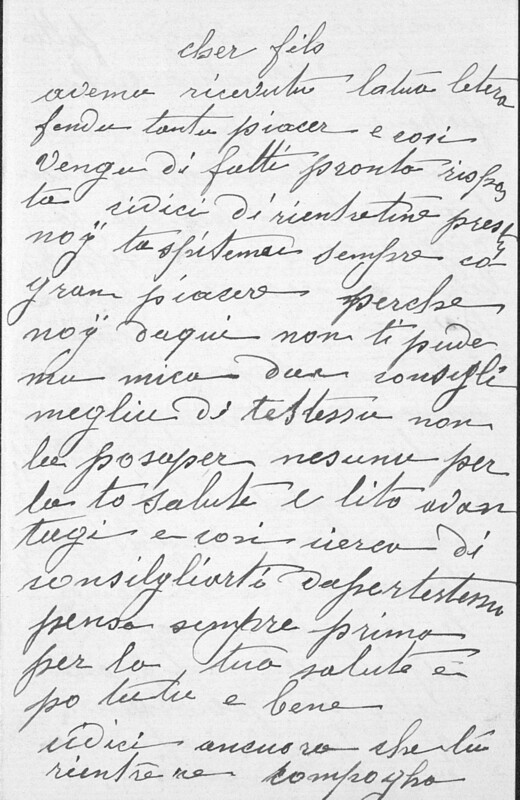 cher fils
avemu ricevutu latua letera
fendu tantu piacer e cosi
vengu di fatti pronta rispos
ta sidici di rientretine prestu
noÿ taspitemai sempre co
gran piacere perche
noÿ daqui non ti pude
mu mica dar consigli
megliu di testessu non
lu posaper nesunu per
la to salute e lito avan
tagi e cosi cierca di
consilgliarti dapertestessu
pensa sempre prima
per la tua salute e
po tutu e bene
sidici ancuora che lu
rientre ne compogha